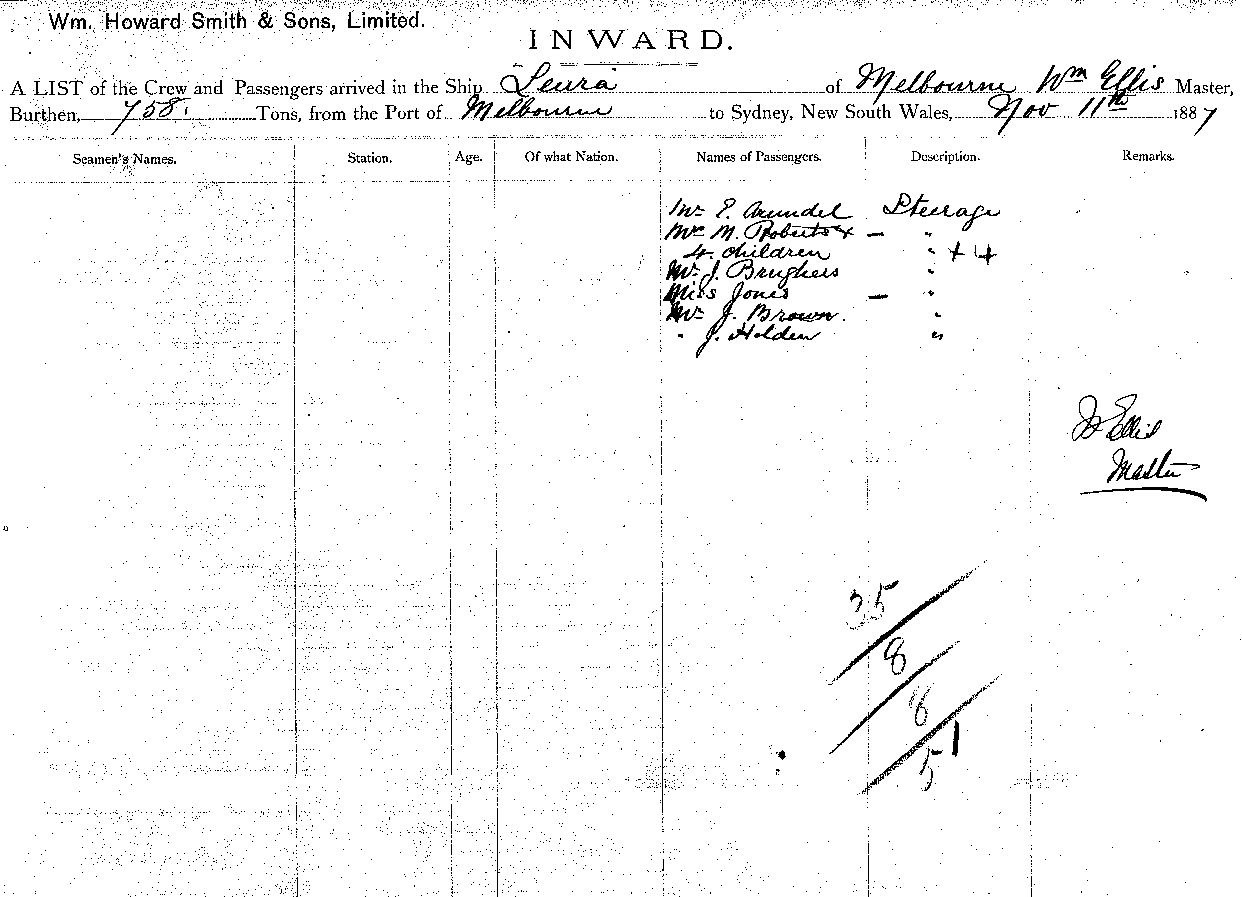 Wm. Howard Smith & Sons, Limited.
INWARD.
A LIST of the Crew and Passengers arrived in the Ship Leura of Melbourne Wm Ellis Master,
Burthen, 758. Tons, from the Port of Melbourne to Sydney, New South Wales, Nov 11th 1887
Seamen's Names. Station. Age. Of what Nation. Names of Passengers. Description. Remarks.
Mr E. Arundel Steerage
M. Roberts + — "
4 children " + 4
Mr J. Brughers "
Miss Jones — "
Mr J. Brown. "
" J. Holden "
W Ellis
Master
35
8
8
51